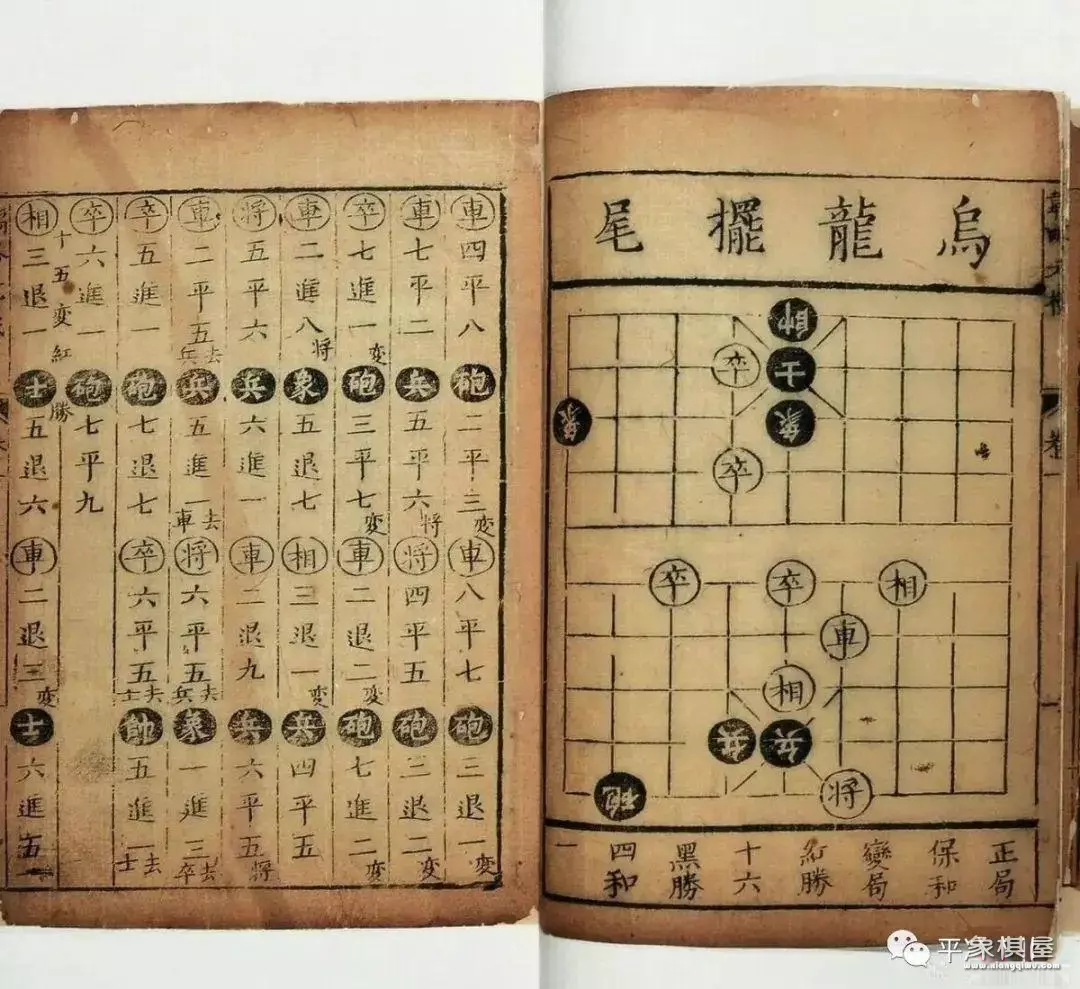 烏龍擺尾
帥
卒士
象象
卒
卒卒相
車
相
兵兵
砲將
正局
保和
變局
紅勝
十六
黑勝
四和
一
卷一
車四平八砲二平三変車八平七砲三退一変
車七平二兵五平六将将四平五砲三退二変
卒七進一変砲三平七変車二退二変砲七進二変
車二進八将象五退七相三退一変兵四平五
将五平六兵六進一車二退九兵六平五将
車二平五去兵兵五進一去車将六平五去兵象一進三去卒
卒五進一砲七退七卒六平五去士帥五進一去士
卒六進一砲七平九
十五变紅勝
相三退一士五退六車二退三変士六進五
平象棋屋
www.xiangqiwu.com